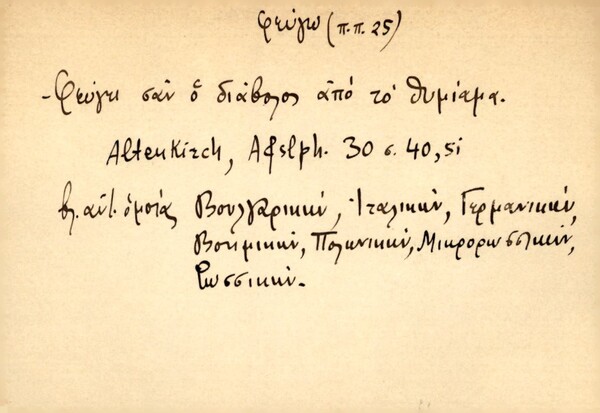 φεύγω (π.π. 25)
- Φεύγει σαν ὁ διάβολος ἀπό τό θυμίαμα.
Altenkirch, Afslph. 30 σ. 40, 51
βλ. αὐτ. ὁμοίας Βουλγαρικήν, Ἰταλικήν, Γερμανικήν,
Βοημικήν, Πολωνικήν, Μικρορωσσικήν,
Ρωσσικήν.